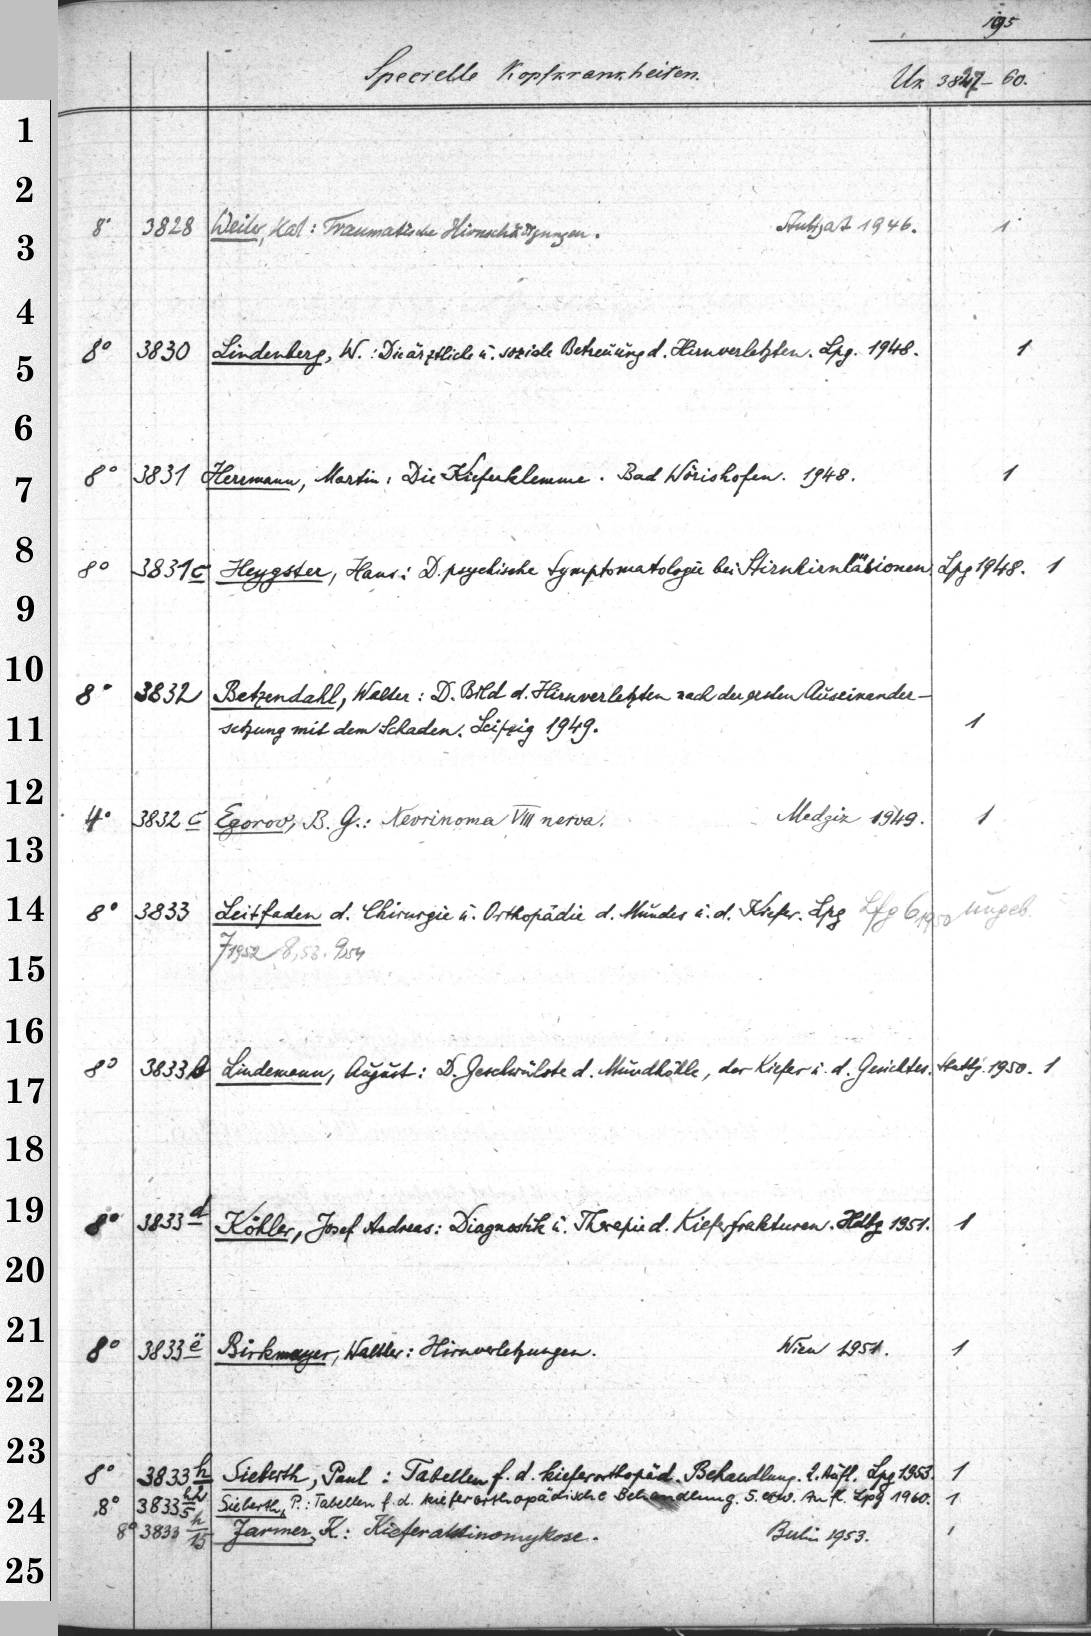 195
Specielle Kopfkrankheiten.
Uz 3827-60.
1
2
3
8° 3828 Weiler, Karl: Traumatische Hirnschädigungen. Stuttgart 1946. 1
4
5
8° 3830 Lindenberg, W.: Die ärztliche u. soziale Betreuung d. Hirnverletzten. Lpg. 1948. 1
6
7
8° 3831 Herrmann, Martin: Die Kieferklemme. Bad Wörishofen. 1948. 1
8
8° 3831c Heygster, Hans: D. psychische Symptomatologie bei Stirnhirnläsionen. Lpg 1948. 1
9
10
8° 3832 Betzendahl, Walter: D. Bild d. Hirnverletzten nach der ersten Auseinander-
11
setzung mit dem Schaden. Leipzig 1949. 1
12
4° 3832 c Egorov, B. G.: Nevrinoma VIII nerva. Medgiz 1949. 1
13
14
8° 3833 Leitfaden d. Chirurgie u. Orthopädie d. Mundes u. d. Kiefer. Lpg Lfg 6 1950 ungeb.
7 1952 8,53. 9 54
15
16
17
8° 3833b Lindemann, August: D. Geschwülste d. Mundhöhle, der Kiefer u. d. Gesichtes. Stuttg. 1950. 1
18
19
8° 3833 d Köhler, Josef Andreas: Diagnostik u. Therapie d. Kieferfrakturen. Hdlbg 1951. 1
20
21
8° 3833 e Birkmayer, Walther: Hirnverletzungen. Wien 1951. 1
22
23
8° 3833 h Sieberth, Paul: Tabellen f. d. kieferorthopäd. Behandlung. 2. Aufl. Lpg 1953. 1
24
8° 3833 h2/5 Sieberth, P.: Tabellen f. d. kieferorthopädische Behandlung. 5. erw. Aufl. Lpg 1960. 1
8° 3833 h/15 Jarmer, K: Kieferaktinomykose. Berlin 1953. 1
25